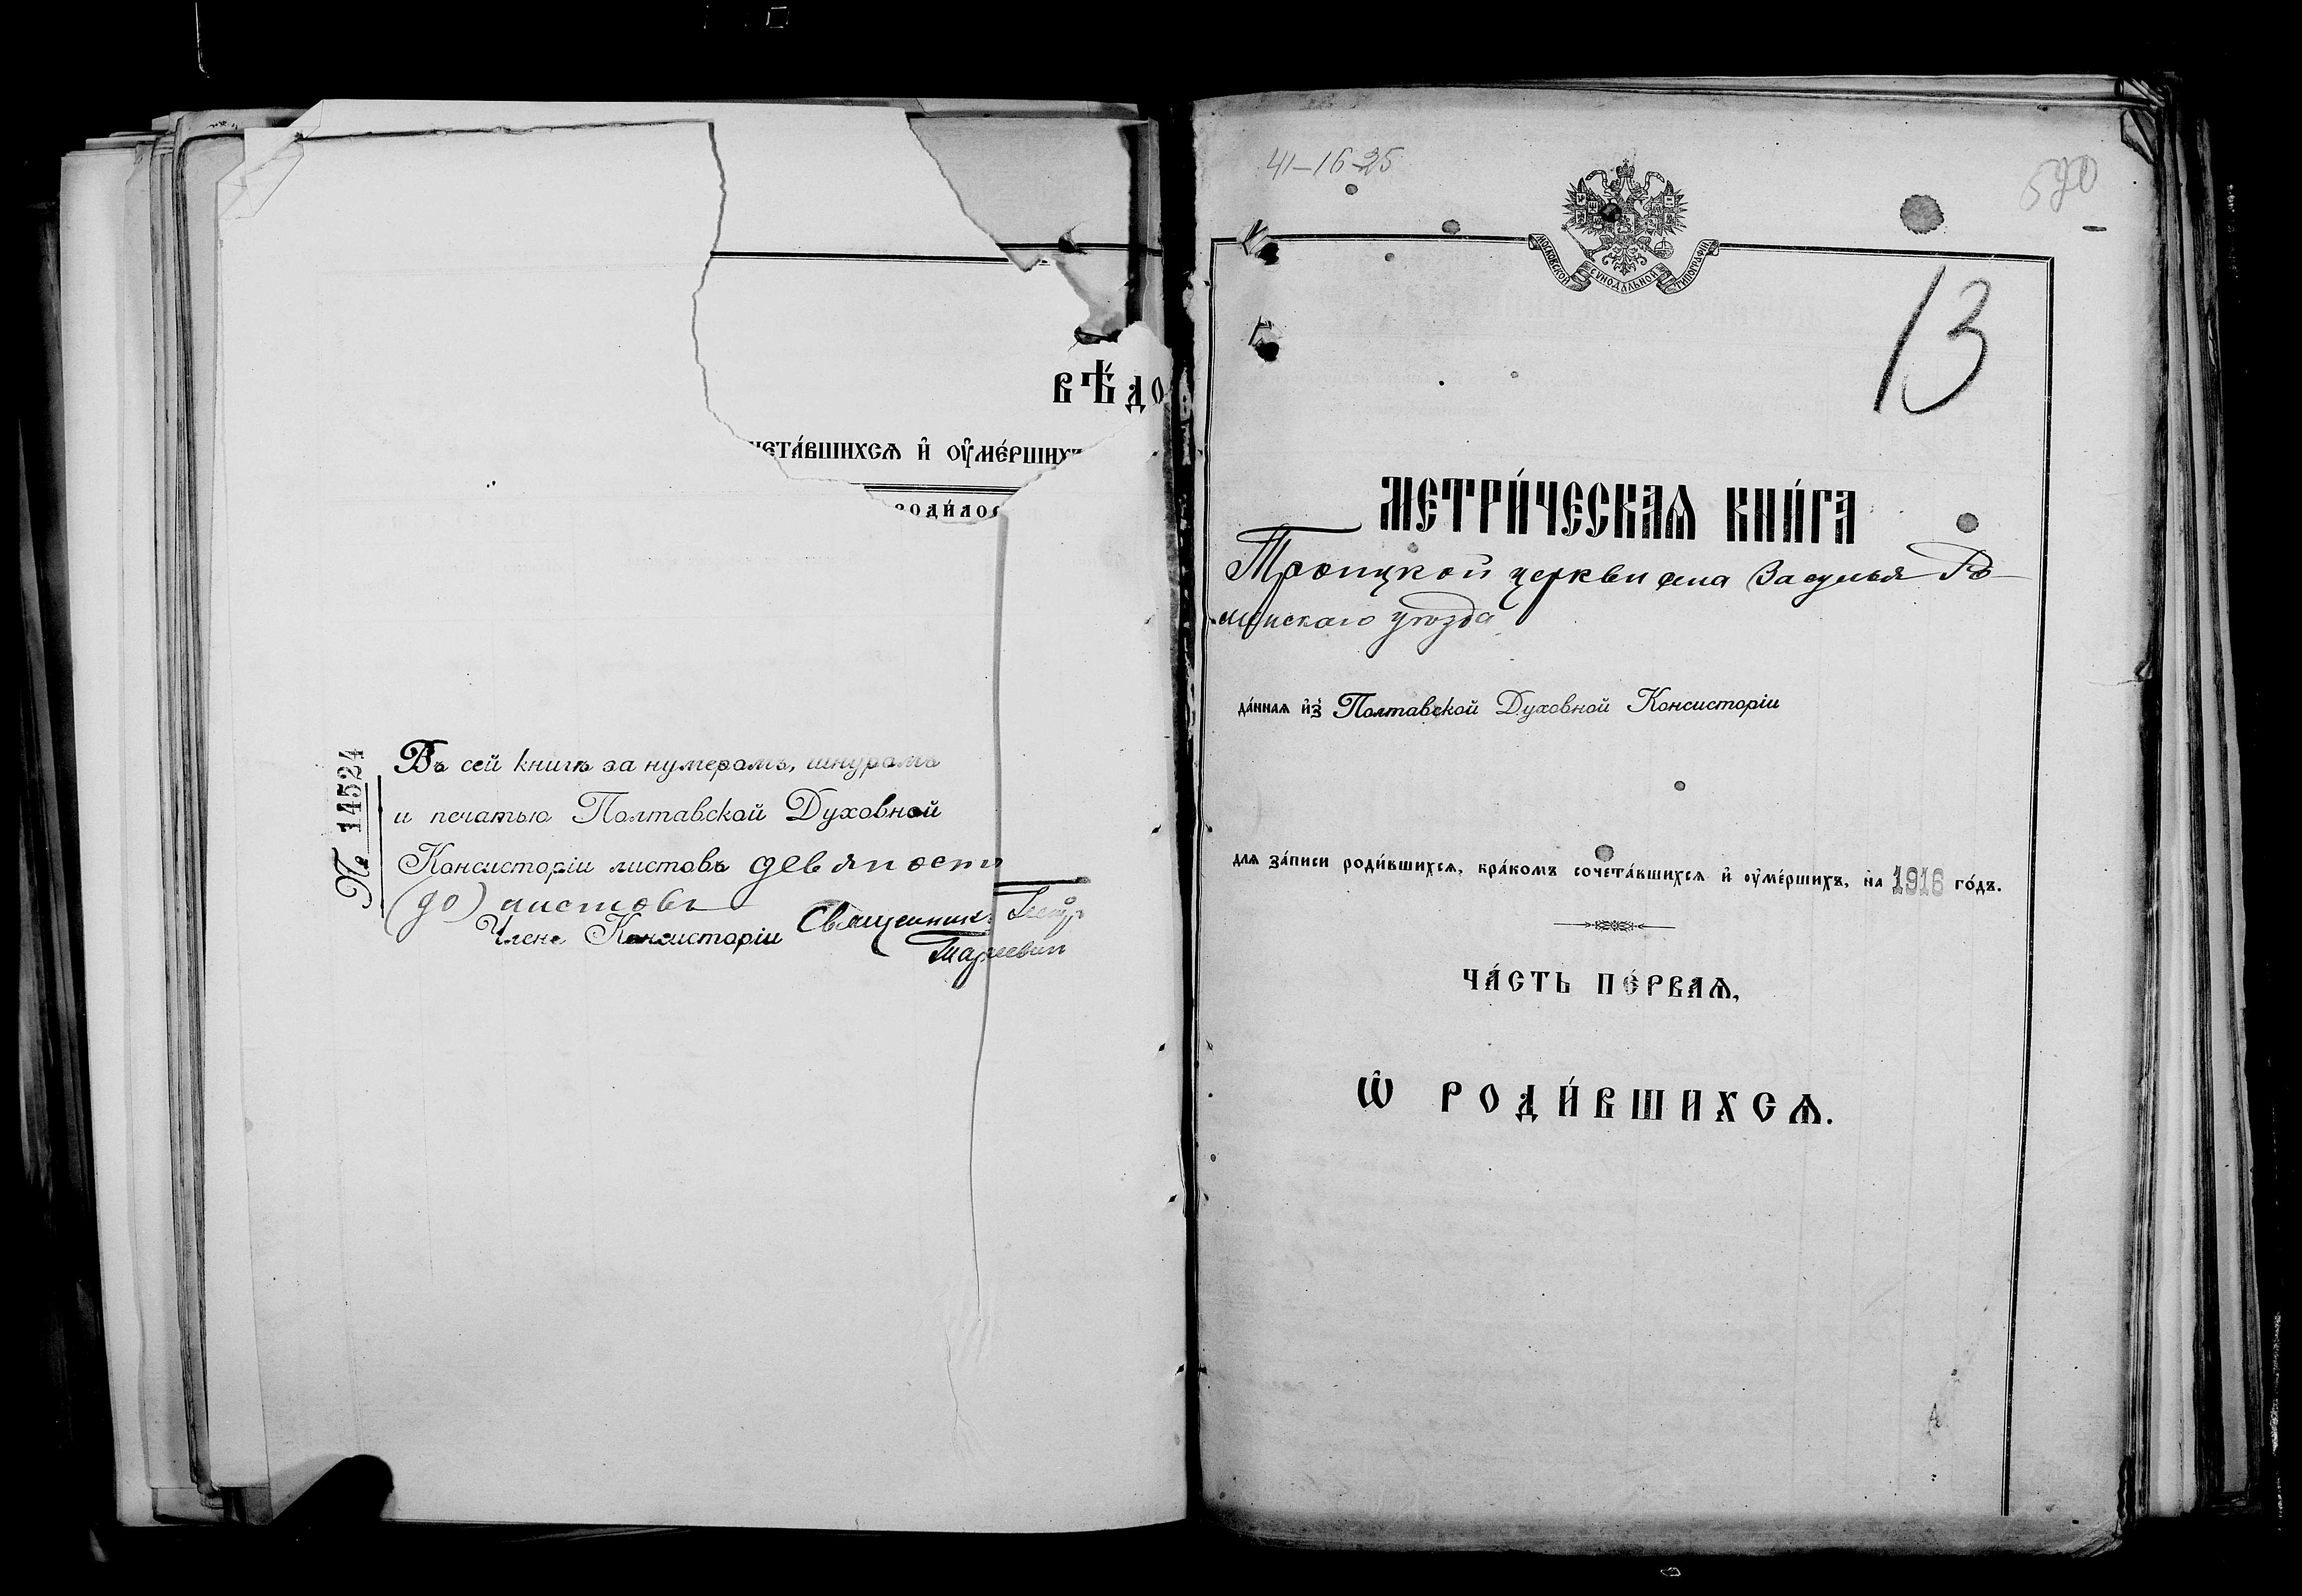 ВѢДО
чета́вшихся и҆ ᲂу҆ме́ршихъ
роди́лос
№ 14524
Въ сей книгѣ за нумеромъ, шнуромъ
и печатью Полтавской Духовной
Консисторіи листовъ девяносто
(90) листовъ
Членъ Консисторіи Священникъ Петръ
41-16-25
570
МОСКОВСКОЙ СѴНОДАЛЬНОЙ ТИПОГРАФІИ
13
МЕТРИ́ЧЕСКАѦ КНИ́ГА
Троицкой церкви села Засулья Ро-
менскаго уѣзда
да́нная и҆з̾ Полтавской Духовной Консисторіи
для за́писи роди́вшихся, бра́комъ сочета́вшихся и҆ ᲂу҆ме́ршихъ, на 1916 го́дъ.
ЧА́СТЬ ПЕ́РВАѦ,
Ѽ РОДИ́ВШИХСѦ.